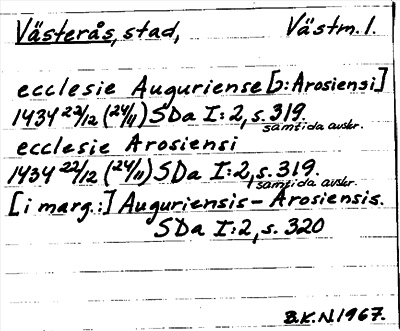 Västerås, stad, Västm. l.
ecclesie Auguriense [ɔ: Arosiensi]
1434 22/12 (24/11) SDa I:2, s. 319.
samtida avskr.
ecclesie Arosiensi
1434 22/12 (24/11) SDa I:2, s. 319.
samtida avskr.
[i marg.:] Auguriensis – Arosiensis.
SDa I:2, s. 320
B.K.N. 1967.